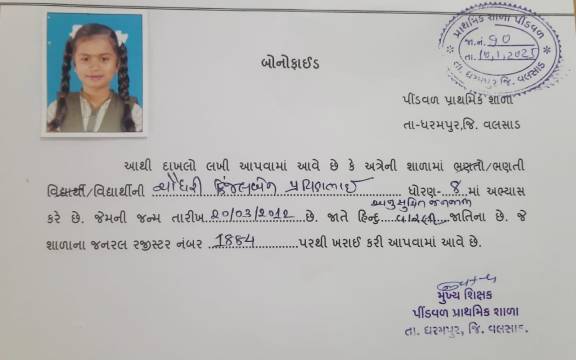 પ્રાથમિક શાળા પીંડવળ
જા.નં. ૧૦
તા. 10.1.2025
તા. ધરમપુર જિ. વલસાડ
બોનોફાઈડ
પીંડવળ પ્રાથમિક શાળા
તા-ધરમપુર,જિ. વલસાડ
આથી દાખલો લખી આપવામાં આવે છે કે અત્રેની શાળામાં ભણતો/ભણતી
વિદ્યાર્થી/વિદ્યાર્થીની ચૌધરી કિંજલબેન પ્રવિણભાઈ ધોરણ- 8 માં અભ્યાસ
અનુસૂચિત જનજાતિ
કરે છે. જેમની જન્મ તારીખ 20/03/2012 છે. જાતે હિન્દુ વારલી જાતિના છે. જે
શાળાના જનરલ રજીસ્ટર નંબર 1884 પરથી ખરાઈ કરી આપવામાં આવે છે.
મુખ્ય શિક્ષક
પીંડવળ પ્રાથમિક શાળા
તા. ધરમપુર, જિ. વલસાડ.